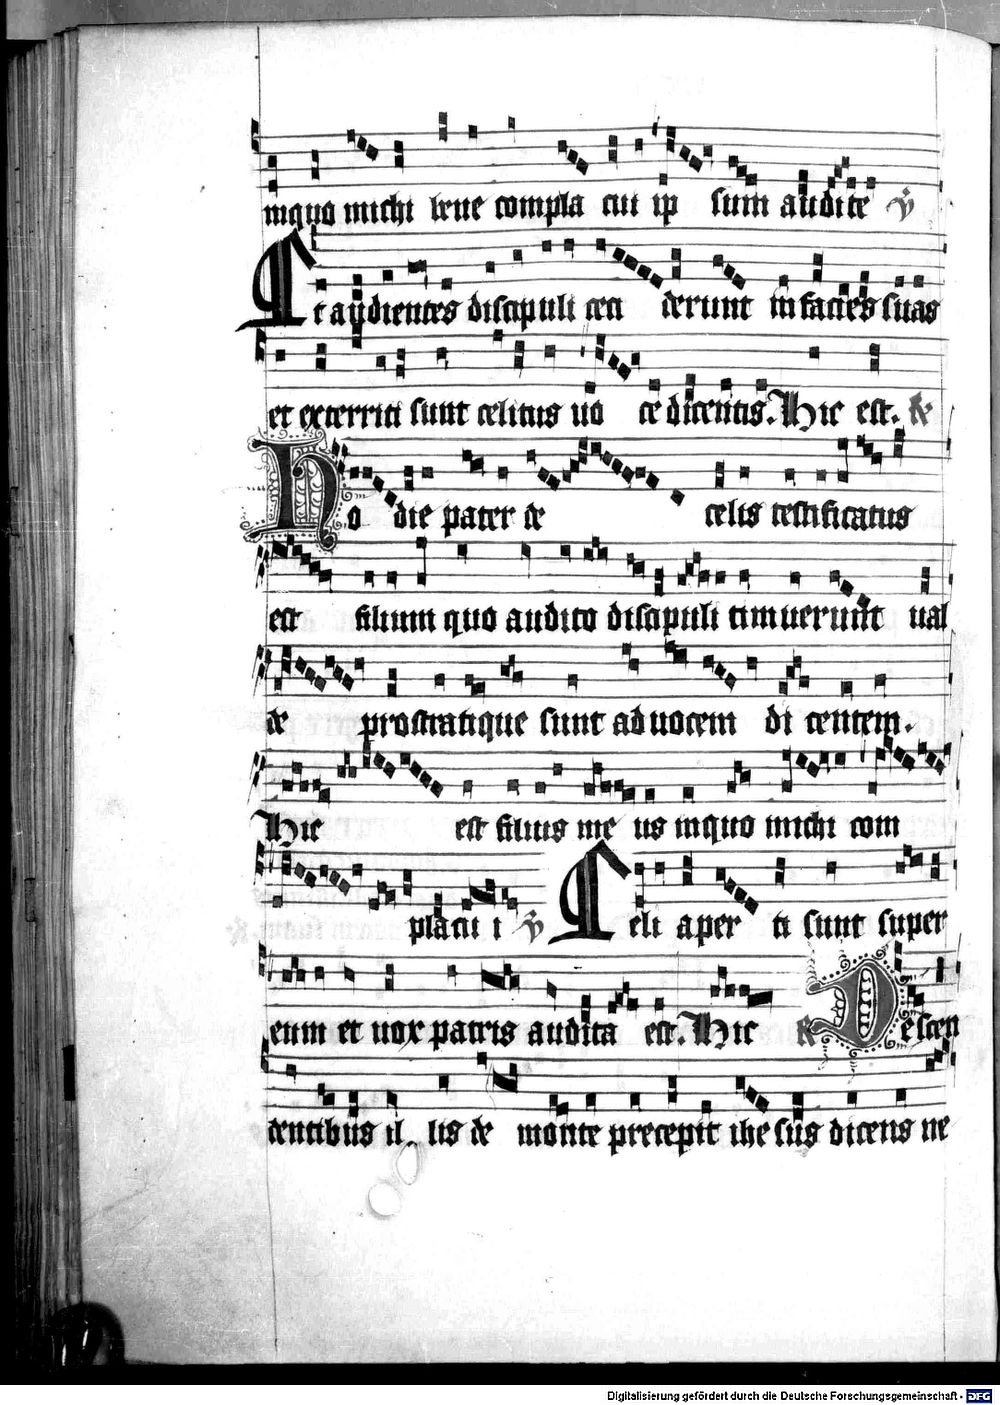 inquo michi bene compla cui ip sum audite ꝟ
Et audientes discipuli ceci derunt in facies suas
et exterriti sunt celitus uo ce dicentis. Hic est. ꝶ
Ho die pater de celis testificatus
est filium quo audito discipuli timuerunt ual
de prostratique sunt ad uocem di centem.
Hic est filius me us inquo michi com
placui i ꝟ Celi aper ti sunt super
eum et uox patris audita est. Hic ꝶ Descen
dentibus il lis de monte precepit ihe sus dicens ne
Digitalisierung gefördert durch die Deutsche Forschungsgemeinschaft - DFG